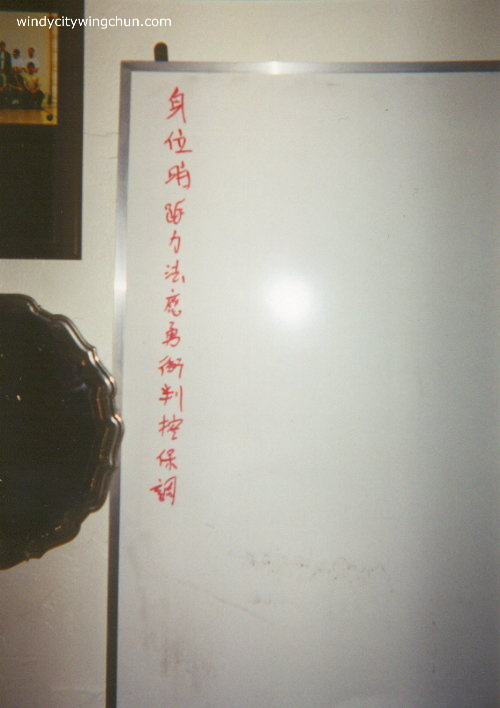 windycitywingchun.com
身位時距力法應勇衝判控保調